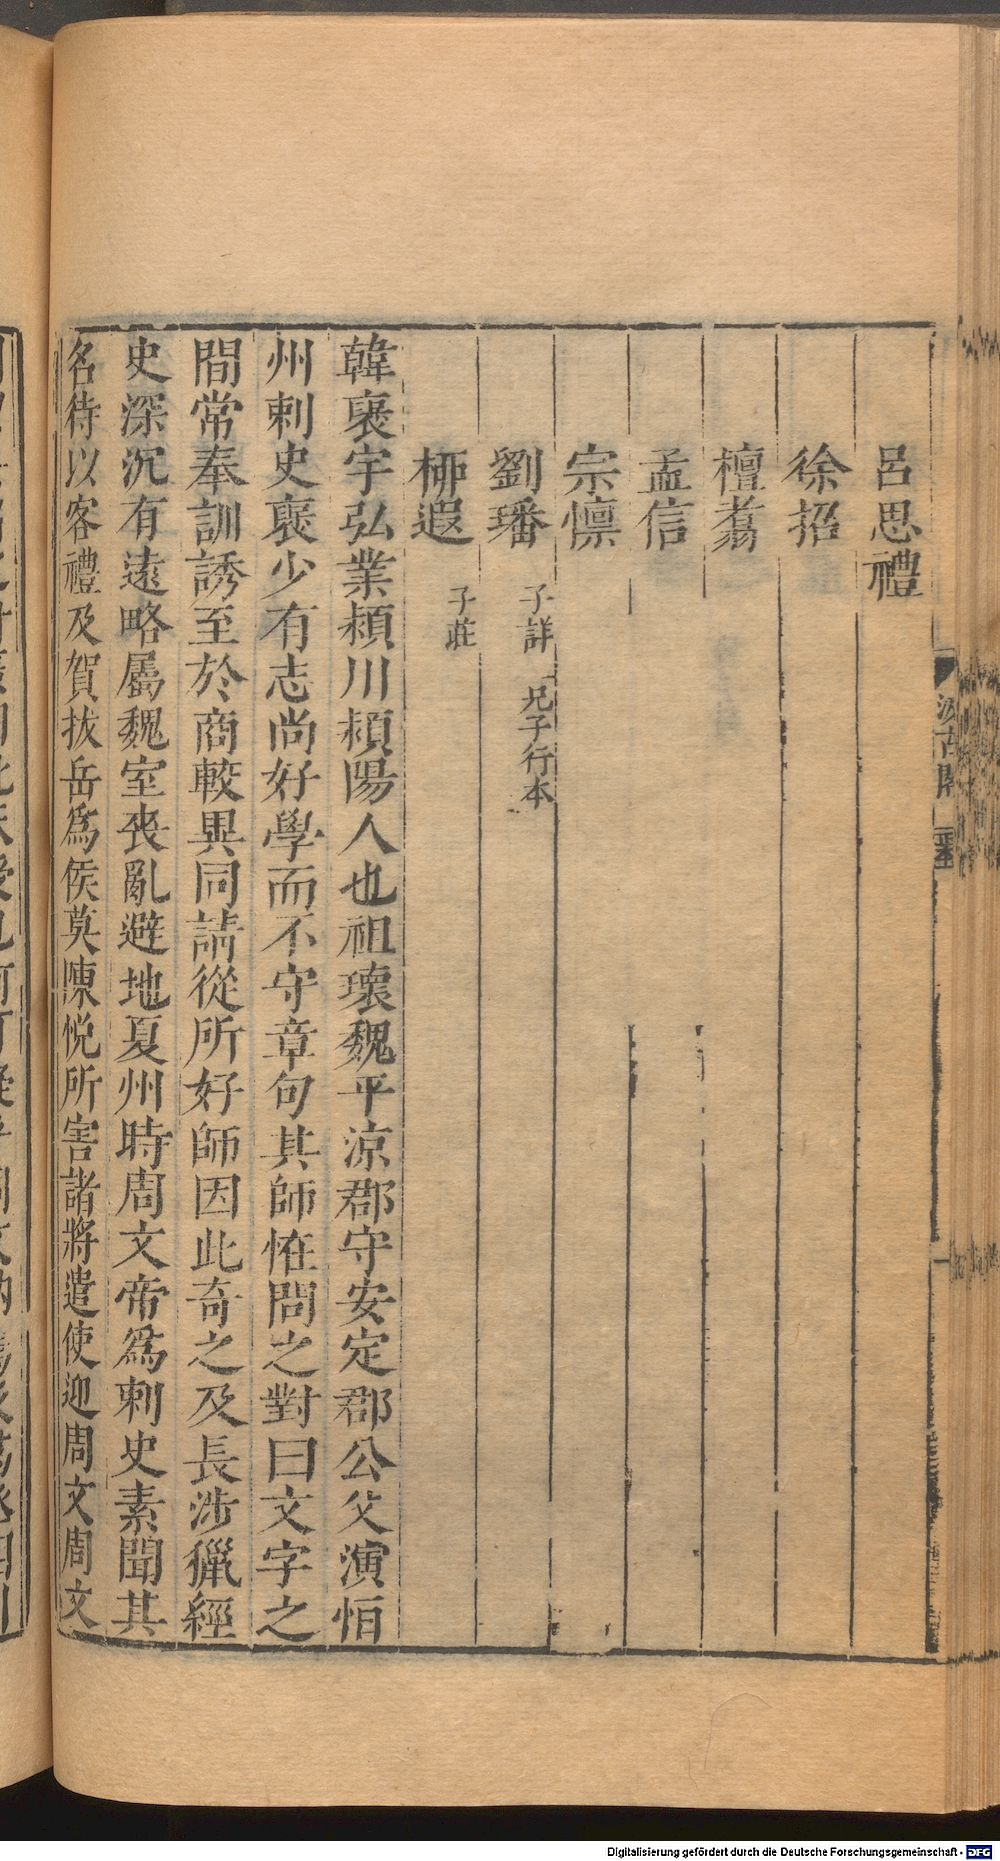 呂思禮
徐招
檀翥
孟信
宗懍
劉璠 子詳 兄子行本
柳遐 子莊
韓襃字弘業潁川潁陽人也祖壞魏平涼郡守安定郡公父演恒
州刺史襃少有志尚好學而不守章句其師怪問之對曰文字之
間常奉訓誘至於商較異同請從所好師因此奇之及長涉獵經
史深沉有遠略屬魏室喪亂避地夏州時周文帝爲刺史素聞其
名待以客禮及賀拔岳爲侯莫陳悅所害諸將遣使迎周文周文
汲古閣
Digitalisierung gefördert durch die Deutsche Forschungsgemeinschaft - DFG